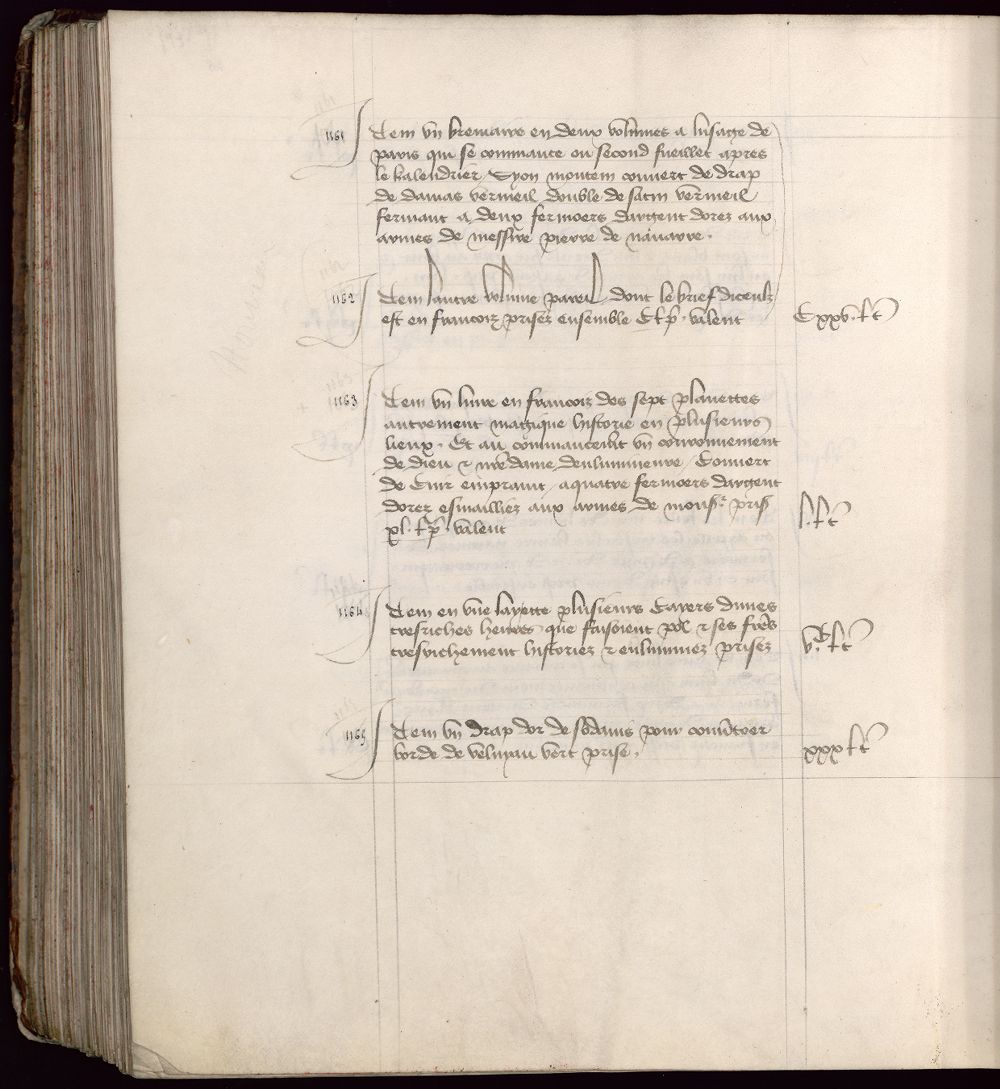 1161 Item un breviaire en deux volumes a lusage de
paris qui se commance ou second fueillet apres
le kalendrier Syon montem couvert de drap
de damas vermeil double de satin vermeil
fermant a deux fermoers dargent dorez aux
armes de messire pierre de navarre.
1162 Item lautre volume pareil dont le brief diceulz
est en francoiz prisez ensemble C l p. valent CXXV. l t
1163 Item un livre en francoiz des sept planettes
autrement magique historie en plusieurs
lieux. Et au commancemt un couronnement
de dieu & nre dame denlumineure / Couvert
de Cuir empraint / a quatre fermoers dargent
dorez esmailliez aux armes de monsr. pris
xl. l p. valent l. l t
1164 Item en une layette plusieurs cayers dunes
tresriches heures que faisoient pol & ses freres
tresrichement historiez & enluminez prisez v.C l t
1165 Item un drap dor de
borde de veluyau vert prise. xxx l t